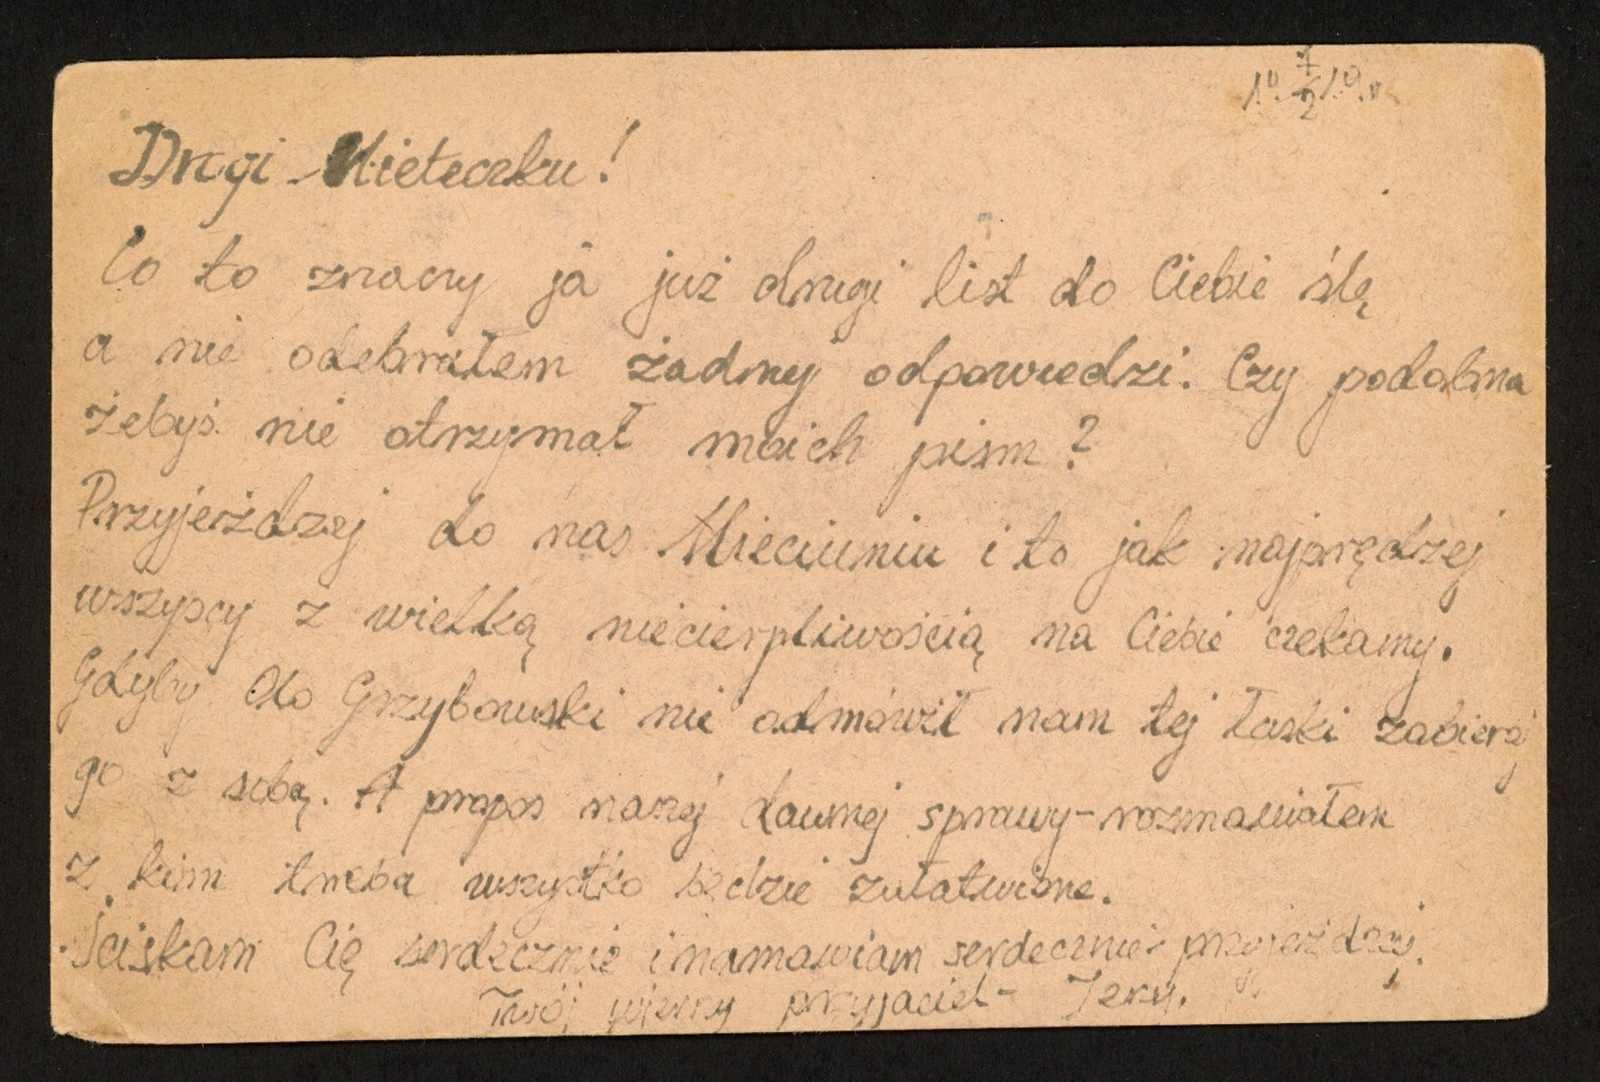 Drogi Mieteczku!
Co to znaczy ja już drugi list do Ciebie ślę
a nie odebrałem żadnej odpowiedzi. Czy podobna
żebyś nie otrzymał moich pism?
Przyjeżdżej do nas Mieciuniu i to jak najprędzej
wszyscy z wielką niecierpliwością na Ciebie czekamy.
Gdyby Olo Grzybowski nie odmówił nam tej łaski zabieraj
go z sobą. A propos naszej dawnej sprawy-rozmawiałem
z kim trzeba wszystko będzie załatwione.
Ściskam Cię serdecznie i namawiam serdecznie przyjeżdżaj.
Twój wierny przyjaciel- Jerzy.